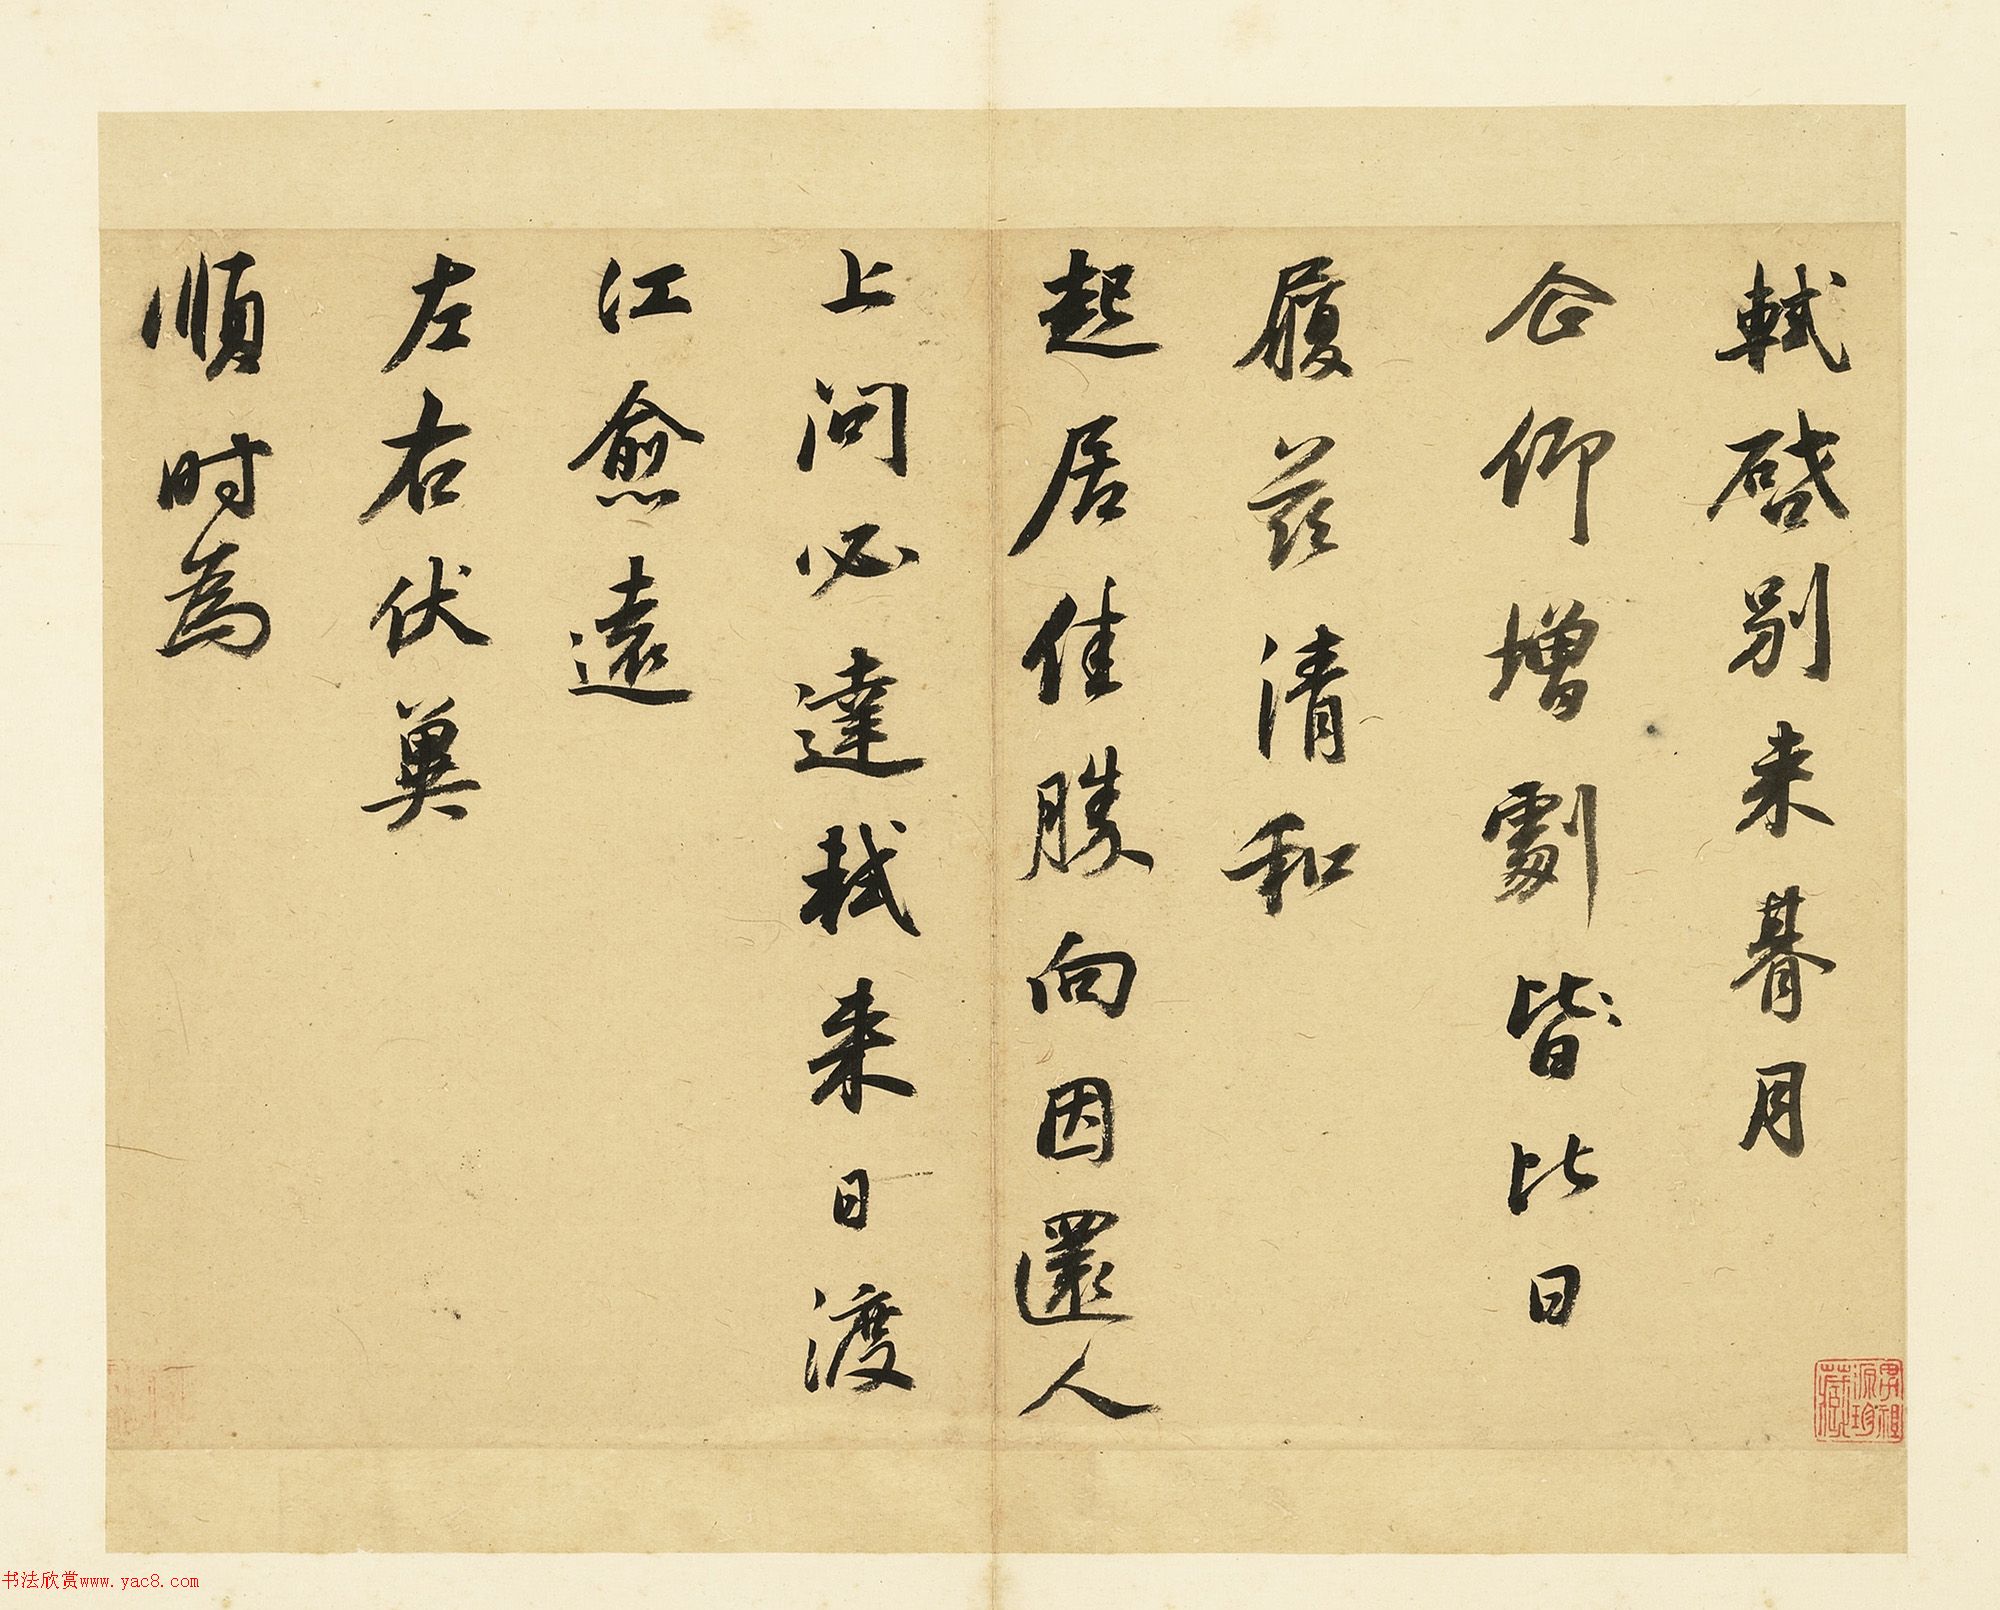 軾啓別來朞月
企仰增劇皆比日
履茲清和
起居佳勝向因還人
上問必達軾來日渡
江愈遠
左右伏冀
順時為
書法欣赏www.yac8.com